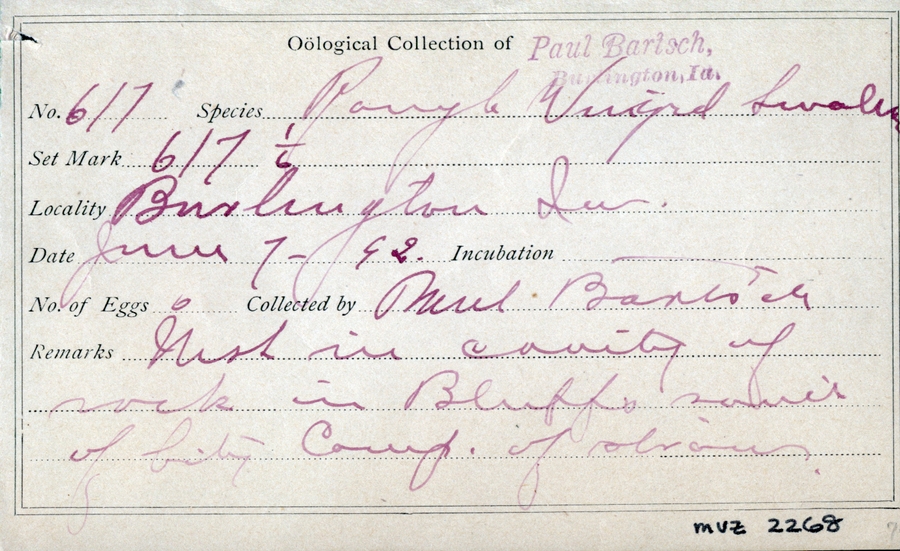 Oölogical Collection of Paul Bartsch,
Burlington, Ia.
No. 617 Species Rough Winged Swallow
Set Mark 617 1/6
Locality Burlington Iw.
Date June 7 - 92. Incubation
No. of Eggs 6 Collected by Paul Bartsch
Remarks Nest in cavity of
rock in Bluffs south
of City Comp. of straws.
mvz 2268